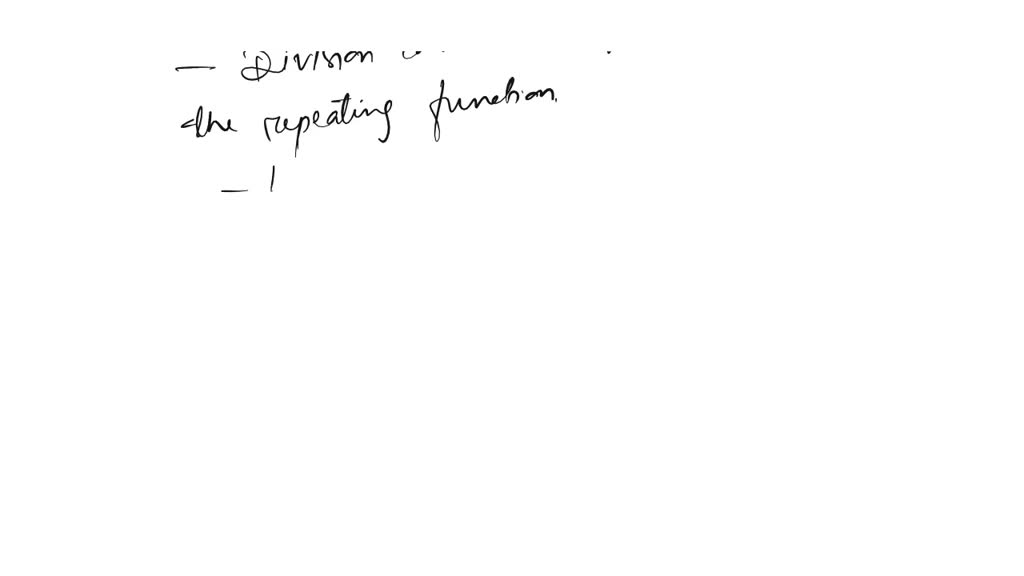 — Division
the repeating function.
—